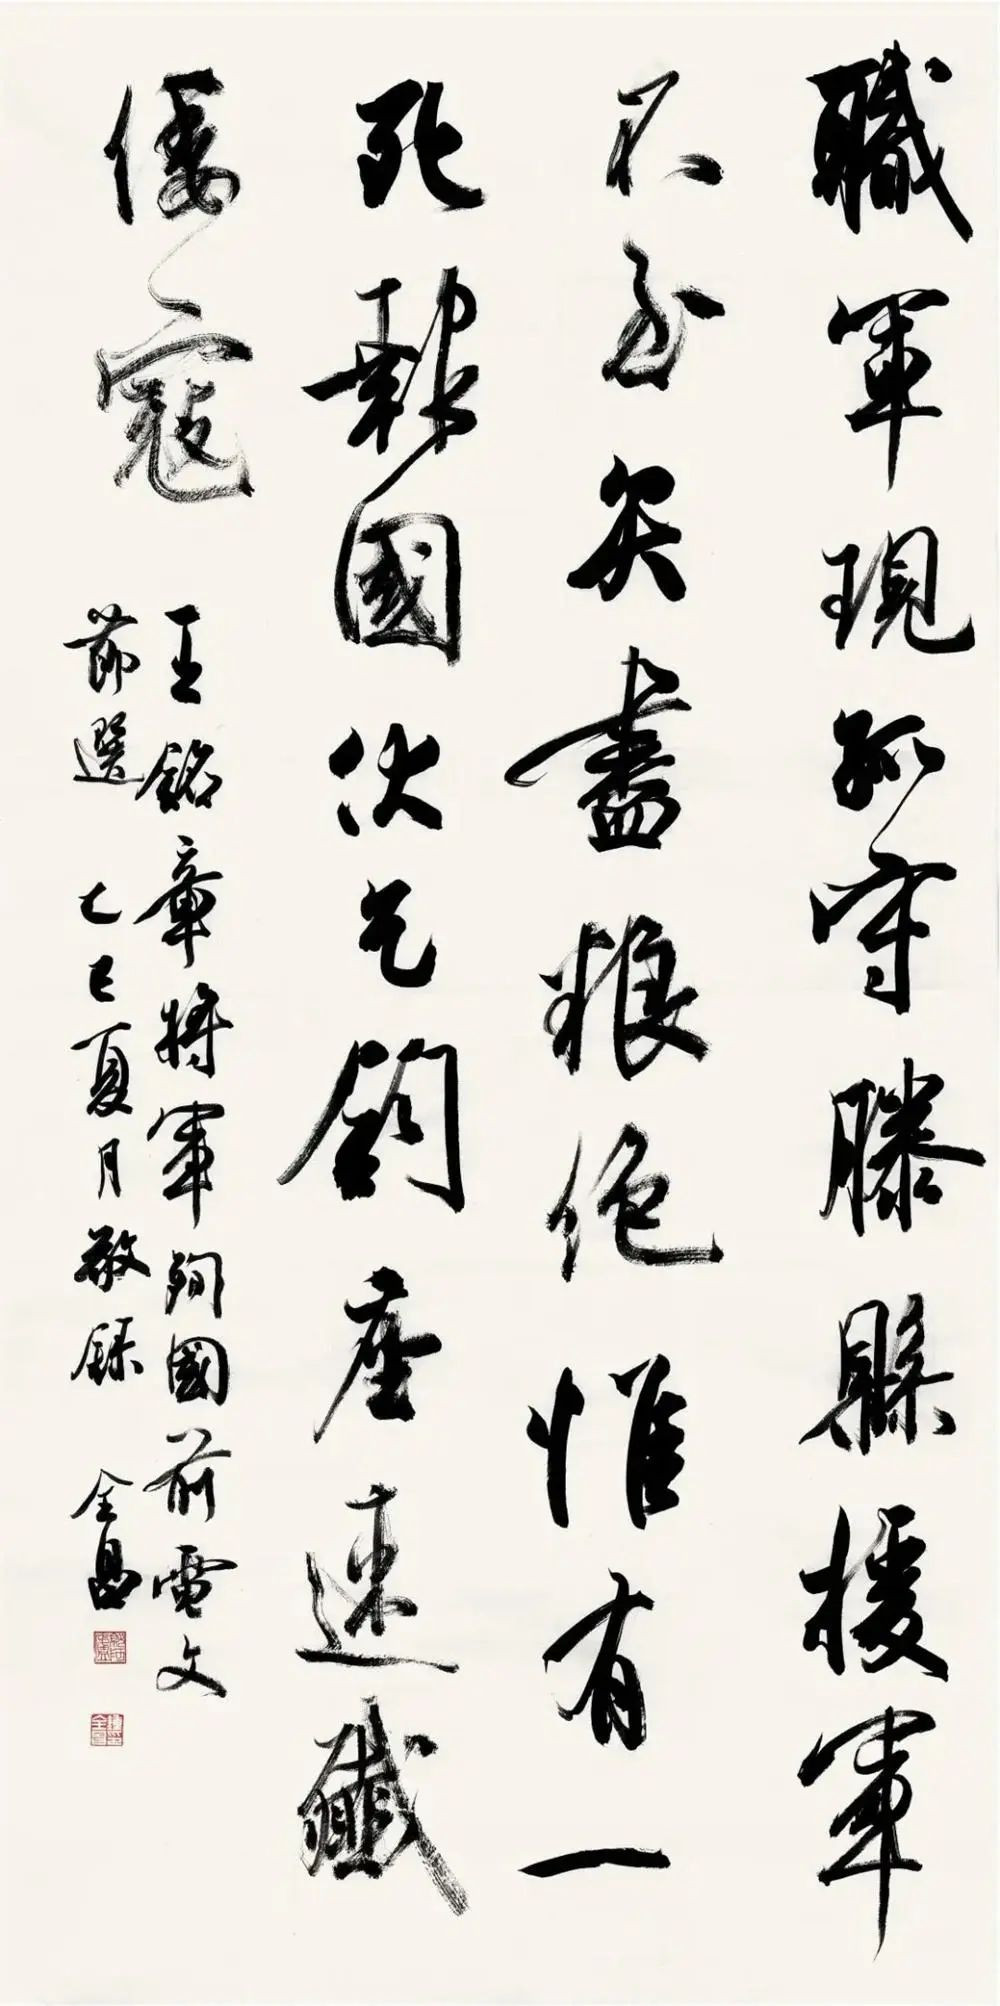 職軍現孤守滕縣援軍
不至矢盡粮绝惟有一
死報國伏乞鈞座速殲
倭寇
王銘章將軍殉國前電文
節選 乙巳夏月敬録 全昌